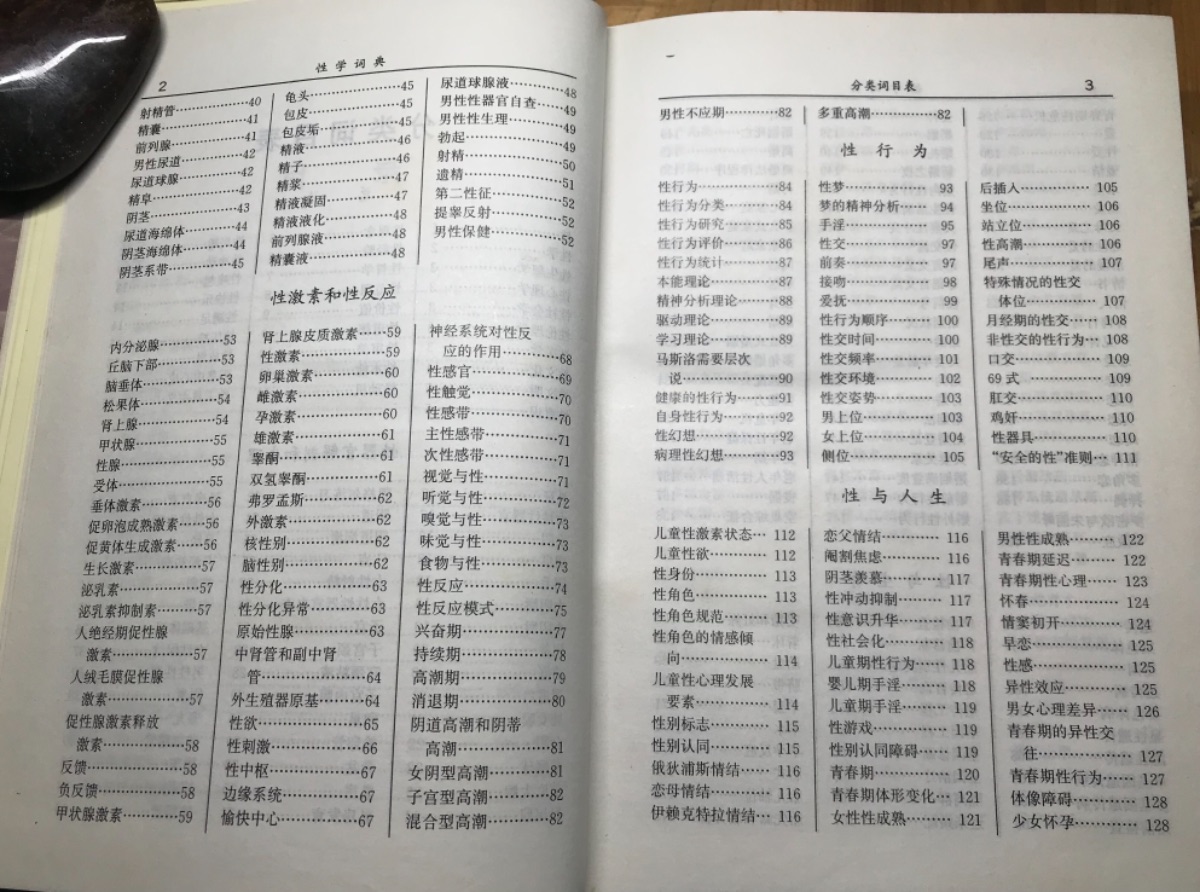 2
性学词典
射精管……………40
精囊………………41
前列腺……………41
男性尿道…………42
尿道球腺…………42
精阜………………42
阴茎………………43
尿道海绵体………44
阴茎海绵体………44
阴茎系带…………45
龟头………………45
包皮………………45
包皮垢……………45
精液………………46
精子………………46
精浆………………47
精液凝固…………47
精液液化…………48
前列腺液…………48
精囊液……………48
尿道球腺液………48
男性性器官自查…49
男性性生理………49
勃起………………49
射精………………50
遗精………………51
第二性征…………52
提睾反射…………52
男性保健…………52
性激素和性反应
内分泌腺…………53
丘脑下部…………53
脑垂体……………53
松果体……………54
肾上腺……………54
甲状腺……………55
性腺………………55
受体………………55
垂体激素…………56
促卵泡成熟激素…56
促黄体生成激素…56
生长激素…………57
泌乳素……………57
泌乳素抑制素……57
人绝经期促性腺
激素……………57
人绒毛膜促性腺
激素……………57
促性腺激素释放
激素……………58
反馈………………58
负反馈……………58
甲状腺激素………59
肾上腺皮质激素…59
性激素……………59
卵巢激素…………60
雌激素……………60
孕激素……………60
雄激素……………61
睾酮………………61
双氢睾酮…………61
弗罗孟斯…………62
外激素……………62
核性别……………62
脑性别……………62
性分化……………63
性分化异常………63
原始性腺…………63
中肾管和副中肾
管………………64
外生殖器原基……64
性欲………………65
性刺激……………66
性中枢……………67
边缘系统…………67
愉快中心…………67
神经系统对性反
应的作用………68
性感官……………69
性触觉……………70
性感带……………70
主性感带…………71
次性感带…………71
视觉与性…………71
听觉与性…………72
嗅觉与性…………73
味觉与性…………73
食物与性…………73
性反应……………74
性反应模式………75
兴奋期……………77
持续期……………78
高潮期……………79
消退期……………80
阴道高潮和阴蒂
高潮……………81
女阴型高潮………81
子宫型高潮………82
混合型高潮………82
分类词目表
3
男性不应期………82
多重高潮…………82
性行为
性行为……………84
性行为分类………84
性行为研究………85
性行为评价………86
性行为统计………87
本能理论…………87
精神分析理论……88
驱动理论…………89
学习理论…………89
马斯洛需要层次
说………………90
健康的性行为……91
自身性行为………92
性幻想……………92
病理性幻想………93
性梦………………93
梦的精神分析……94
手淫………………95
性交………………97
前奏………………97
接吻………………98
爱抚………………99
性行为顺序………100
性交时间…………100
性交频率…………101
性交环境…………102
性交姿势…………103
男上位……………103
女上位……………104
侧位………………105
后插入……………105
坐位………………106
站立位……………106
性高潮……………106
尾声………………107
特殊情况的性交
体位……………107
月经期的性交……108
非性交的性行为…108
口交………………109
69式………………109
肛交………………110
鸡奸………………110
性器具……………110
“安全的性”准则…111
性与人生
儿童性激素状态…112
儿童性欲…………112
性身份……………113
性角色……………113
性角色规范………113
性角色的情感倾
向………………114
儿童性心理发展
要素……………114
性别标志…………115
性别认同…………115
俄狄浦斯情结……116
恋母情结…………116
伊赖克特拉情结…116
恋父情结…………116
阉割焦虑…………116
阴茎羡慕…………117
性冲动抑制………117
性意识升华………117
性社会化…………118
儿童期性行为……118
婴儿期手淫………118
儿童期手淫………119
性游戏……………119
性别认同障碍……119
青春期……………120
青春期体形变化…121
女性性成熟………121
男性性成熟………122
青春期延迟………122
青春期性心理……123
怀春………………124
情窦初开…………124
早恋………………125
性感………………125
异性效应…………125
男女心理差异……126
青春期的异性交
往………………127
青春期性行为……127
体像障碍…………128
少女怀孕…………128